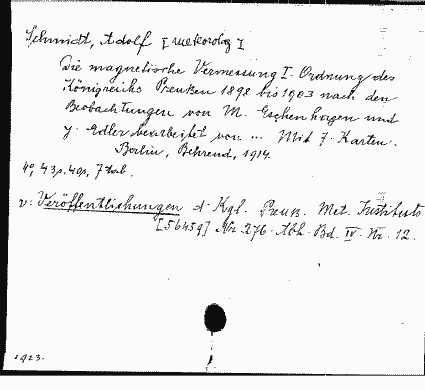 Schmidt, Adolf [meteorolog]
Die magnetische Vermessung I. Ordnung des
Königreichs Preußen 1898 bis 1903 nach den
Beobachtungen von M. Eschenhagen und
J. Edler bearbeitet von ... Mit 7 Karten.
Berlin, Behrend, 1914.
4°, 43 p. 4 gr., 7 tab.
v: Veröffentlichungen d. Kgl. Preuß. Met. Instituts
[56459] Nr. 276. Abh. Bd. IV. Nr. 12.
1923.